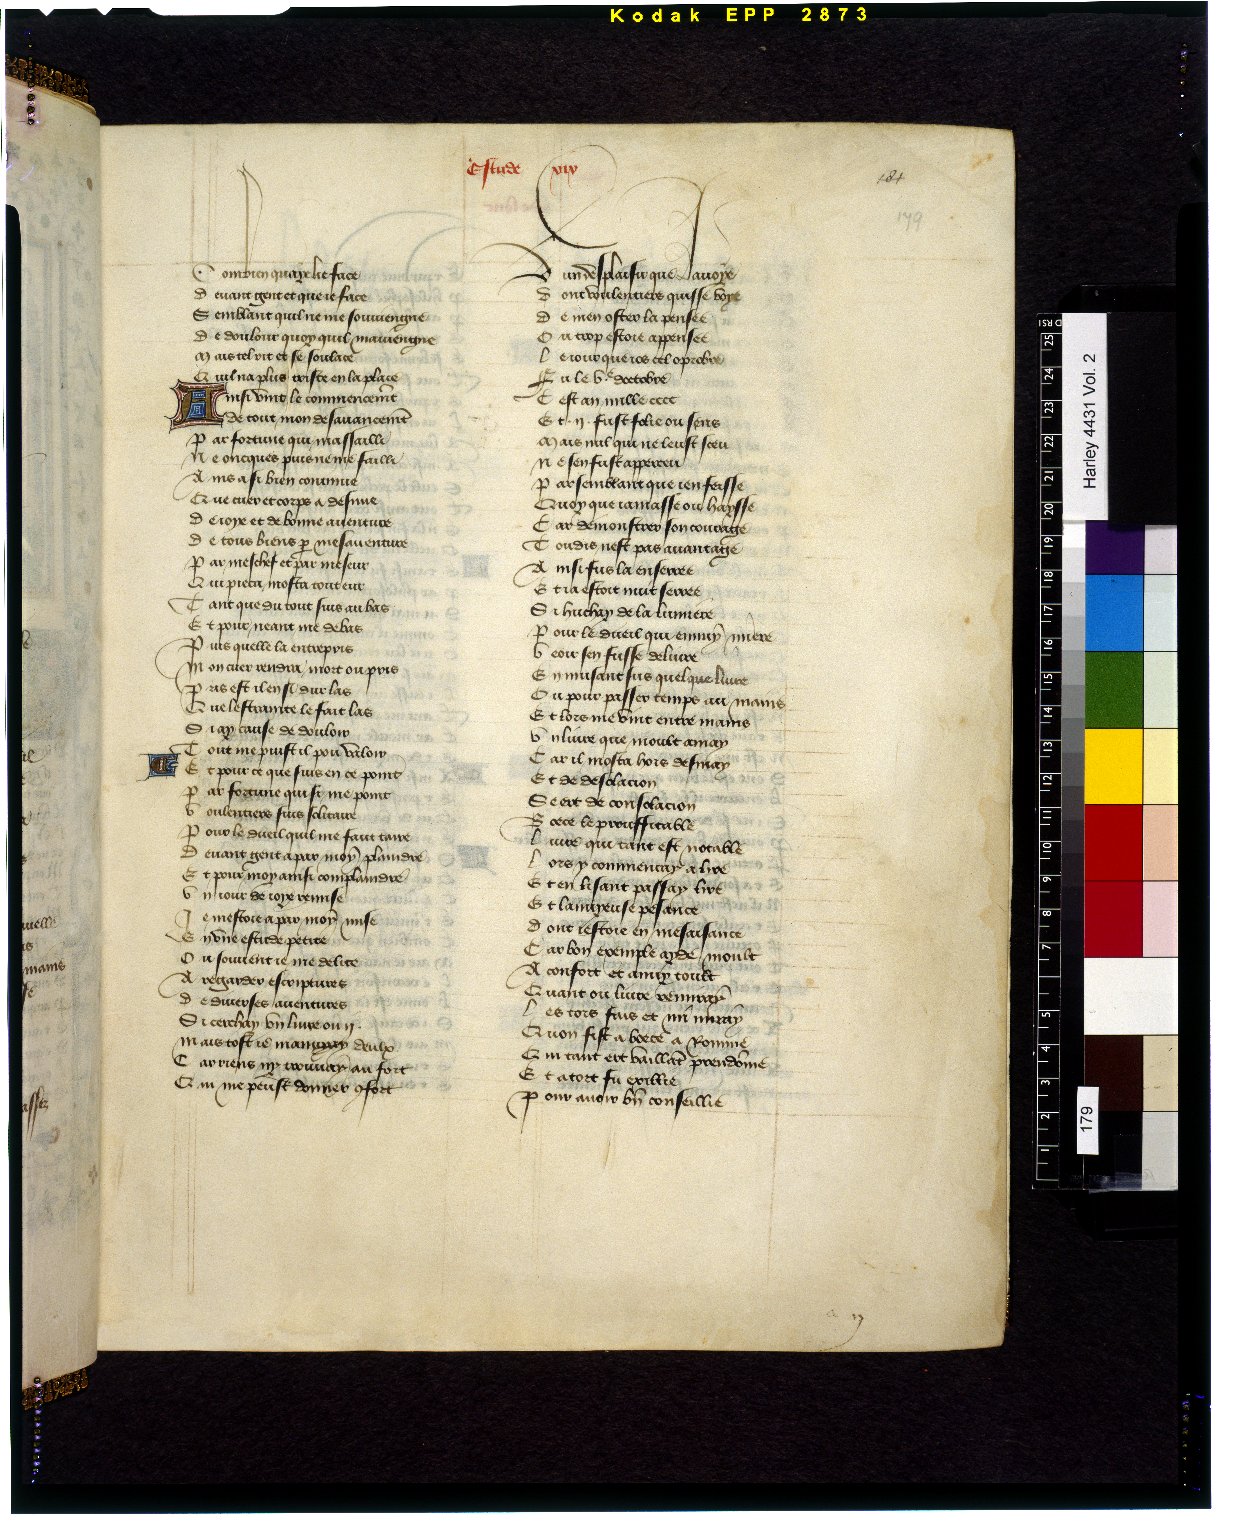 Kodak EPP 2873
Estude xix
184
179
Combien quaye lie face
Devant gent et que ie face
Semblant quil ne me souviengne
De doulour quoy quil maviengne
Mais tel rit et se soulace
Quil na plus triste en la place
Ainsi vint le commencemt
de tout mon desavancemt
Par fortune qui massaille
Ne oncques puis ne me failli
Ains a si bien continue
Que cuer et corps a desnue
De ioye et de bonne aventure
De tous biens p mesaventure
Par meschef et par meseur
Qui pieca mosta tout eur
Tant que du tout suis au bas
Et pour neant me debas
Puis quelle la entrepris
Mon cuer rendra mort ou pris
Pris est il en si dur las
Que lestrainte le fait las
Si ay cause de doulour
Tout me puist il pou valoir
Et pour ce que suis en ce point
Par fortune qui si me point
Voulentiers suis solitaire
Pour le dueil quil me faut taire
Devant gent a par moy plaindre
Et pour moy ainsi complaindre
Un iour de ioye remise
Ie mestoie a par moy mise
En vne estude petite
Ou souvent ie me delite
A regarder escriptures
De diverses aventures
Si cerchay un livre ou ij.
Mais tost ie mannyay deulx
Car riens ny trouvay au fort
Qui me peust donner cfort
Dun desplaisir que iavoye
Dont voulentiers quisse voye
De men oster la pensee
Ou trop estoie appensee
Le iour que ios cel oprobre
Fu le ve doctobre
Cest an mille cccc
Et .ij. fust folie ou sens
Mais nul qui ne leust sceu
Ne sen fust apperceu
Par semblant que ien feisse
Quoy que iamasse ou haysse
Car demonstrer son courage
Toudis nest pas avantage
Ainsi fus la enserree
Et ia estoit nuit serree
Si huchay de la lumiere
Pour le dueil qui ennuy miere
Veoir sen fusse delivre
En musant sus quelque livre
Ou pour passer temps au mains
Et lors me vint entre mains
Un livre que moult amay
Car il mosta hors desmay
Et de desolacion
Se ert de consolacion
Boece le prouffitable
Livre qui tant est notable
Lors y commencay a lire
Et en lisant passay lire
Et lanuyeuse pesance
Dont iestoie en mesaisance
Car bon exemple ayde moult
A confort et anuy toult
Quant ou livre remiray
Les tors fais et mi miray
Quon fist a boece a Romme
Qui tant ert vaillat preudomme
Et a tort fu exillie
Pour avoir bn conseillie
Harley 4431 Vol. 2
179